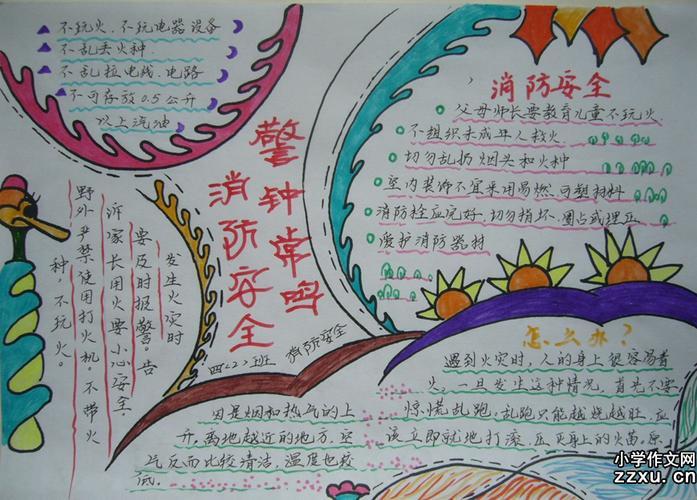 不玩火、不玩电器设备
不乱丢火种
不乱拉电线、电路
不可存放0.5公升
以上汽油
警钟常鸣
消防安全
消防安全
父母师长要教育儿童不玩火
不组织未成年人救火
切勿乱扔烟头和火种
室内装饰不宜采用易燃可塑材料
消防栓应完好,切勿损坏、圈占或埋压
爱护消防器材
发生火灾时
要及时报警。告
诉家长用火要小心安全
野外严禁使用打火机。不带火
种,不玩火。
四(2)班 消防安全
因是烟和热气的上
升,离地越近的地方,空
气反而比较清洁,温度也较
低。
怎么办?
遇到火灾时,人的身上很容易着
火,一旦发生这种情况,首先不要
惊慌乱跑,乱跑只能越烧越旺,应
该立即就地打滚,压灭身上的火苗,原
小学作文网
zzxu.cn